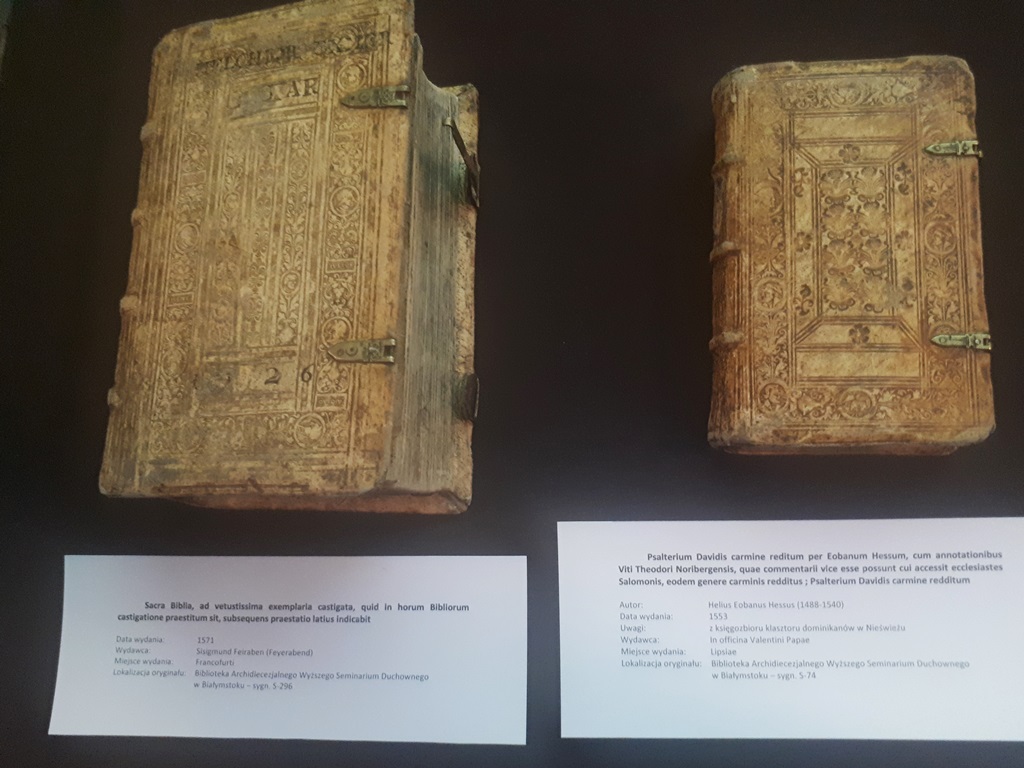 2 6
Sacra Biblia, ad vetustissima exemplaria castigata, quid in horum Bibliorum
castigatione praestitum sit, subsequens praestatio latius indicabit
Data wydania: 1571
Wydawca: Sisigmund Feiraben (Feyerabend)
Miejsce wydania: Francofurti
Lokalizacja oryginału: Biblioteka Archidiecezjalnego Wyższego Seminarium Duchownego
w Białymstoku – sygn. S-296
Psalterium Davidis carmine reditum per Eobanum Hessum, cum annotationibus
Viti Theodori Noribergensis, quae commentarii vice esse possunt cui accessit ecclesiastes
Salomonis, eodem genere carminis redditus ; Psalterium Davidis carmine redditum
Autor: Helius Eobanus Hessus (1488-1540)
Data wydania: 1553
Uwagi: z księgozbioru klasztoru dominikanów w Nieświeżu
Wydawca: In officina Valentini Papae
Miejsce wydania: Lipsiae
Lokalizacja oryginału: Biblioteka Archidiecezjalnego Wyższego Seminarium Duchownego
w Białymstoku – sygn. S-74